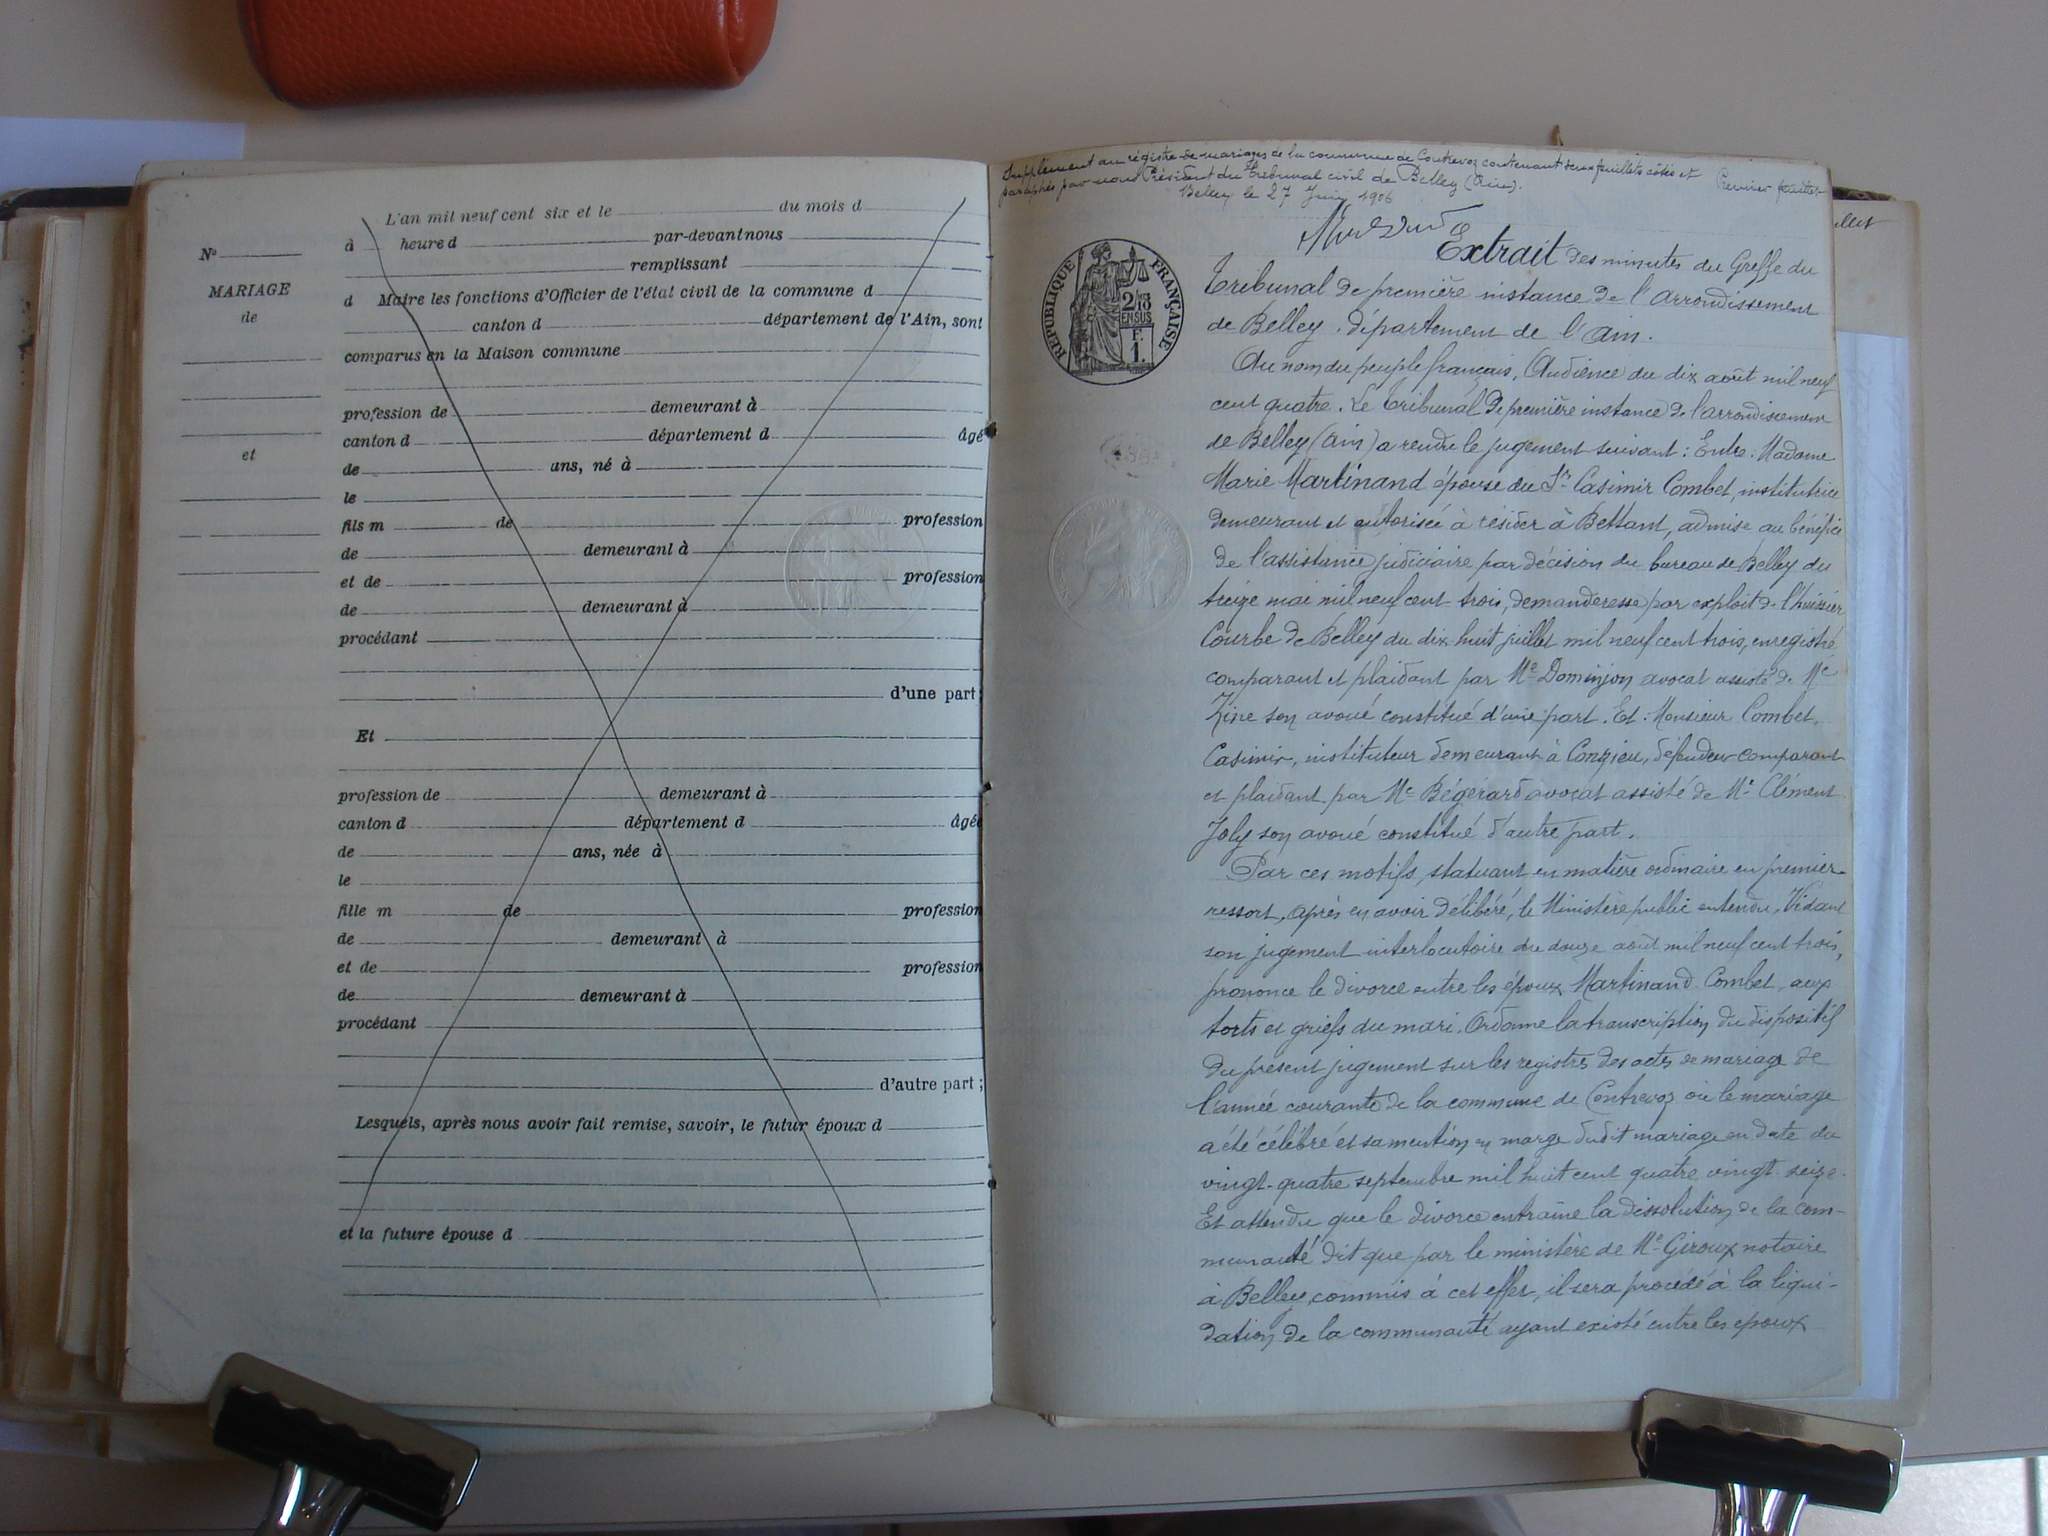 L'an mil neuf cent six et le du mois d
à heure d par-devant nous
remplissant
d Maire les fonctions d'Officier de l'état civil de la commune d
canton d département de l'Ain, sont
comparus en la Maison commune
profession de demeurant à
canton d département d âgé
de ans, né à
le
fils m de profession
de demeurant à
et de profession
de demeurant à
procédant
d'une part;
Et
profession de demeurant à
canton d département d âgée
de ans, née à
le
fille m de profession
de demeurant à
et de profession
de demeurant à
procédant
d'autre part;
Lesquels, après nous avoir fait remise, savoir, le futur époux d
et la future épouse d
No
MARIAGE
de
et
Supplément au régistre de mariages de la commune de Contrevoz contenant deux feuillets côtés et
paraphés par nous Président du Tribunal civil de Belley (Ain).
Belley le 27 Juin 1906
Premier feuillet
RÉPUBLIQUE FRANÇAISE
2/10
EN SUS
F.
1.
Extrait des minutes du Greffe du
Tribunal de première instance de l'arrondissement
de Belley, département de l'Ain.
Au nom du peuple français, Audience du dix août mil neuf
cent quatre. Le Tribunal de première instance de l'arrondissement
de Belley (Ain) a rendu le jugement suivant : Entre : Madame
Marie Martinand épouse du Sr Casimir Combet, institutrice
demeurant et autorisée à résider à Bettant, admise au bénéfice
de l'assistance judiciaire par décision du bureau de Belley du
treize mai mil neuf cent trois, demanderesse par exploit de l'huissier
Courbe de Belley du dix huit juillet mil neuf cent trois, enregistré,
comparant et plaidant par Me Dominjon avocat assisté de Me
son avoué constitué d'une part. Et : Monsieur Combet
Casimir, instituteur demeurant à Conzieu, défendeur comparant
et plaidant par Me Bégérard avocat assisté de Me Clément
Joly son avoué constitué d'autre part.
Par ces motifs, statuant en matière ordinaire en premier
ressort, après en avoir délibéré, le Ministère public entendu, Vidant
son jugement interlocutoire du douze août mil neuf cent trois,
prononce le divorce entre les époux Martinand Combet, aux
torts et griefs du mari. Ordonne la transcription du dispositif
du présent jugement sur les registres des actes de mariage de
l'année courante de la commune de Contrevoz où le mariage
a été célébré et sa mention en marge dudit mariage en date du
vingt-quatre septembre mil huit cent quatre vingt seize.
Et attendu que le divorce entraîne la dissolution de la com-
munauté dit que par le ministère de Me Giroux notaire
à Belley, commis à cet effet, il sera procédé à la liqui-
dation de la communauté ayant existé entre les époux